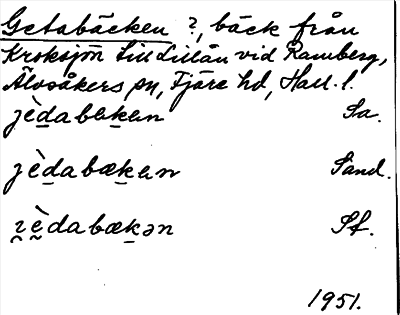 Getabäcken ?, bäck från
Kroksjön till Lillån vid Ramberg,
Älvsåkers sn, Fjäre hd, Hall. l.
jèdabäkän Sa.
jèdabækän Sand.
jèdabækən Sf.
1951.